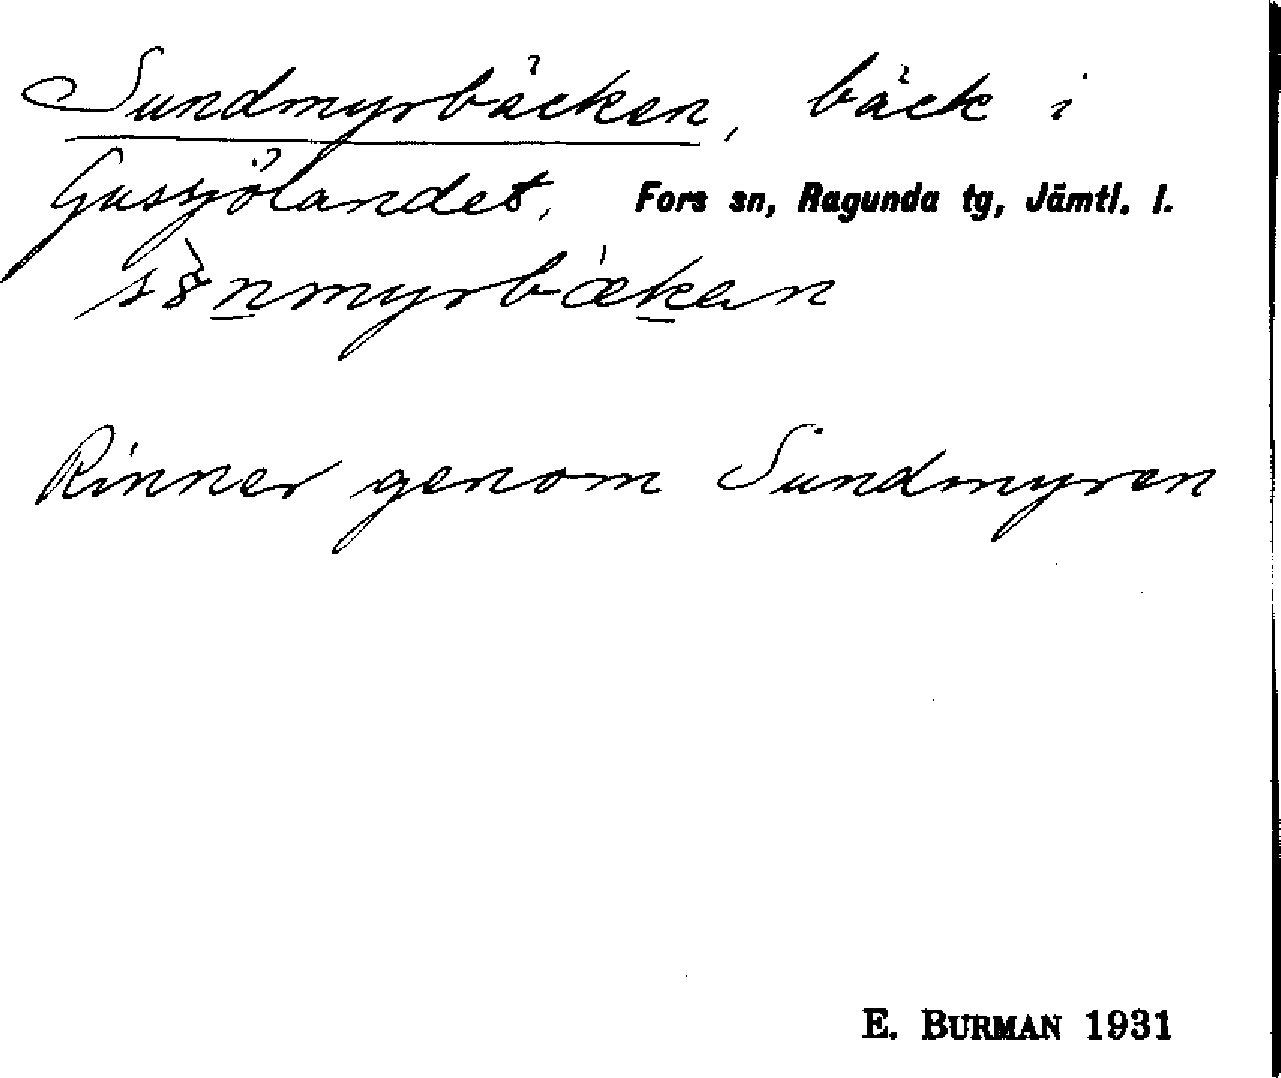 Sundmyrbäcken, bäck i
Gussjölandet, Fors sn, Ragunda tg, Jämtl. l.
Rinner genom Sundmyren
E. BURMAN 1931